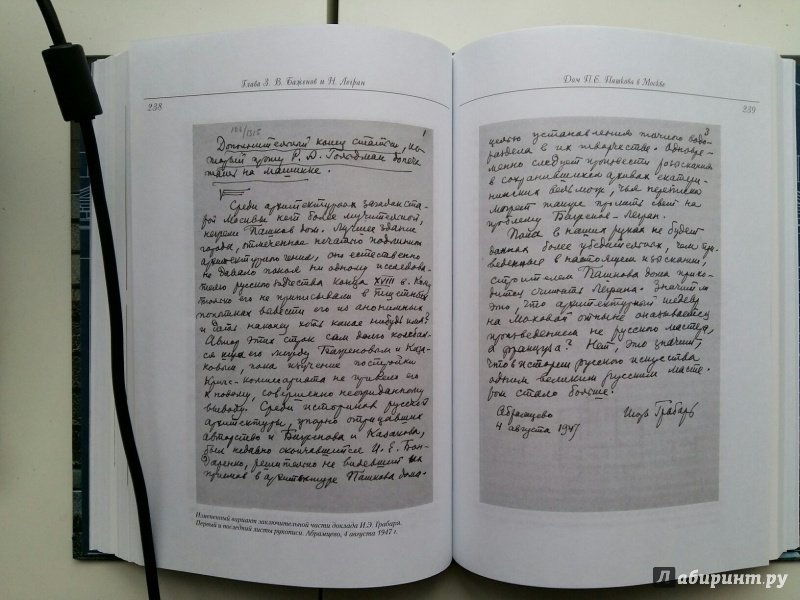 Глава 3. В. Баженов и Н. Легран
238
102/1315
1
Дополнительный конец статьи, ко-
торый прошу Р. Д. Гольдман допеча-
тать на машинке.
Среди архитектурных загадок ста-
рой Москвы нет более мучительной,
нежели Пашков дом. Лучшее здание
города, отмеченное печатью подлинного
архитектурного гения, оно естественно
не давало покоя ни одному исследова-
телю русского зодчества конца XVIII в. Кому
только его не приписывали в тщетных
попытках вывести его из анонимных
и дать наконец хоть какое нибудь имя?
Автор этих строк сам долго колебал-
ся между Баженовым и Каза-
ковым, пока изучение постройки
Кригс-комиссариата не привело его
к новому, совершенно неожиданному
выводу. Среди историков русской
архитектуры, упорно отрицавших
авторство и Баженова и Казакова,
был недавно скончавшийся И. Е. Бон-
даренко, решительно не видевший их
приемов в архитектуре Пашкова дома.
Измененный вариант заключительной части доклада И.Э. Грабаря.
Первый и последний листы рукописи. Абрамцево, 4 августа 1947 г.
Дом П.Е. Пашкова в Москве
239
3
целью установления точного водо-
раздела в их творчестве. Одновре-
менно следует произвести розыскания
в сохранившихся архивах екатери-
нинских вельмож, чья переписка
может также пролить свет на
проблему Баженов-Легран.
Пока в наших руках не будет
данных более убедительных, чем при-
веденные в настоящем изыскании,
строителем Пашкова дома прихо-
дится считать Леграна. Значит ли
это, что архитектурный шедевр
на Моховой отныне оказывается
произведением не русского мастера,
а француза? Нет, это значит,
что в истории русского искусства
одним великим русским масте-
ром стало больше.
Абрамцево
4 августа 1947
Игорь Грабарь
Лабиринт.ру